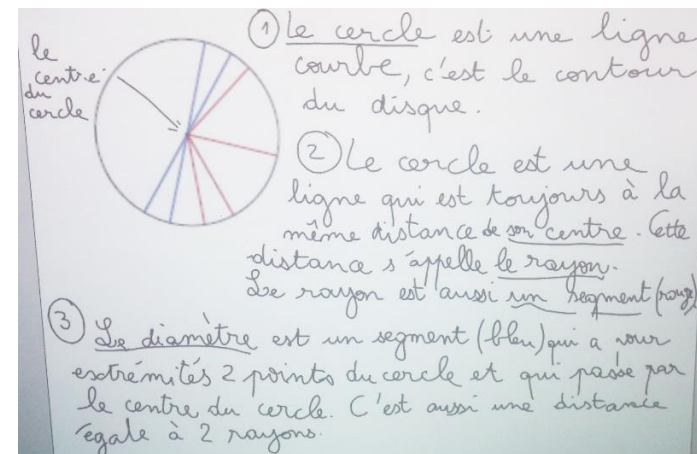 le
centre
du
cercle
① Le cercle est une ligne
courbe, c'est le contour
du disque.
② Le cercle est une
ligne qui est toujours à la
même distance de son centre. Cette
distance s'appelle le rayon.
Le rayon est aussi un segment (rouge)
③ Le diamètre est un segment (bleu) qui a pour
extrémités 2 points du cercle et qui passe par
le centre du cercle. C'est aussi une distance
égale à 2 rayons.